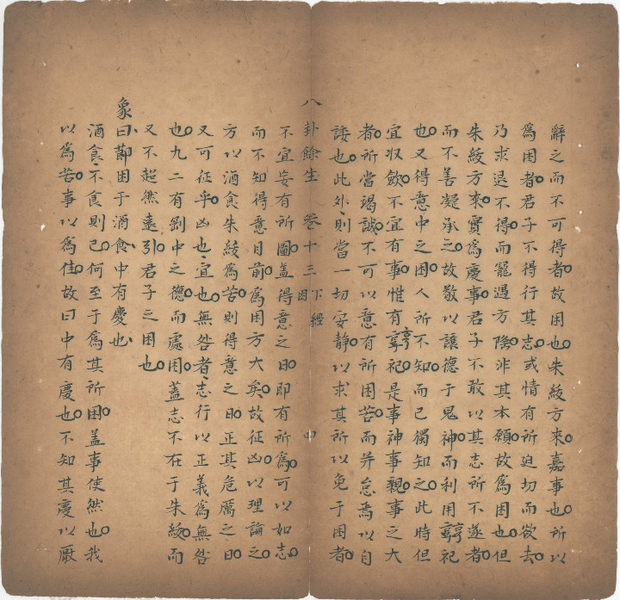 辭之而不可得者故困也朱紱方來嘉事也所以
為困者君子不得行其志或情有所迫切而欲去
乃求退不得而寵遇方隆非其本願故為困也但
朱紱方來實為慶事君子不敢以其志所不遂者
而不善凝承之故敬以讓德于鬼神而利用享祀
也又得意中之困人所不知而已獨知之此時但
宜収歛不宜有事惟有享祀是事神事親事之大
者所當竭誠不可以意有所困苦而并怠焉以自
諉也此外則當一切安靜以求其所以免于困者
八卦餘生 卷十三 下經 困
不宜妄有所圖盖得意之日即有所為可以如志
而不知得意目前為困方大矣故征凶以理論之
方以酒食朱紱為苦則得意之日正其危厲之日
又可征乎凶也宜也無咎者志行以正義為無咎
也九二有剛中之德而處困蓋志不在于朱紱而
又不超然遠引君子之困也
象曰困于酒食中有慶也
酒食不食則已何至于為其所困盖事使然也我
以為苦事以為佳故曰中有慶也不知其慶以厭